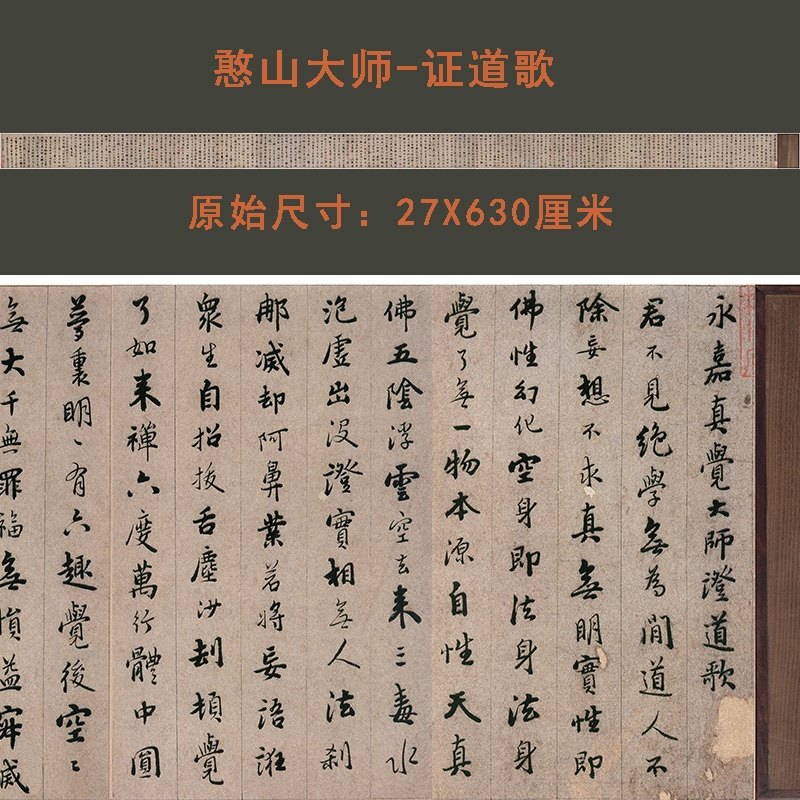 憨山大师-证道歌
原始尺寸：27X630厘米
永嘉真覺大師澄道歌
君不見絕學無為閒道人不
除妄想不求真無明實性即
佛性幻化空身即法身法身
覺了無一物本源自性天真
佛五陰浮雲空去来三毒水
泡虛出没澄實相無人法刹
那滅却阿鼻業若將妄語誑
衆生自招拔舌塵沙刼頓覺
了如来禪六度萬行體中圓
夢裏明〻有六趣覺後空〻
無大千無罪福無損益寂滅